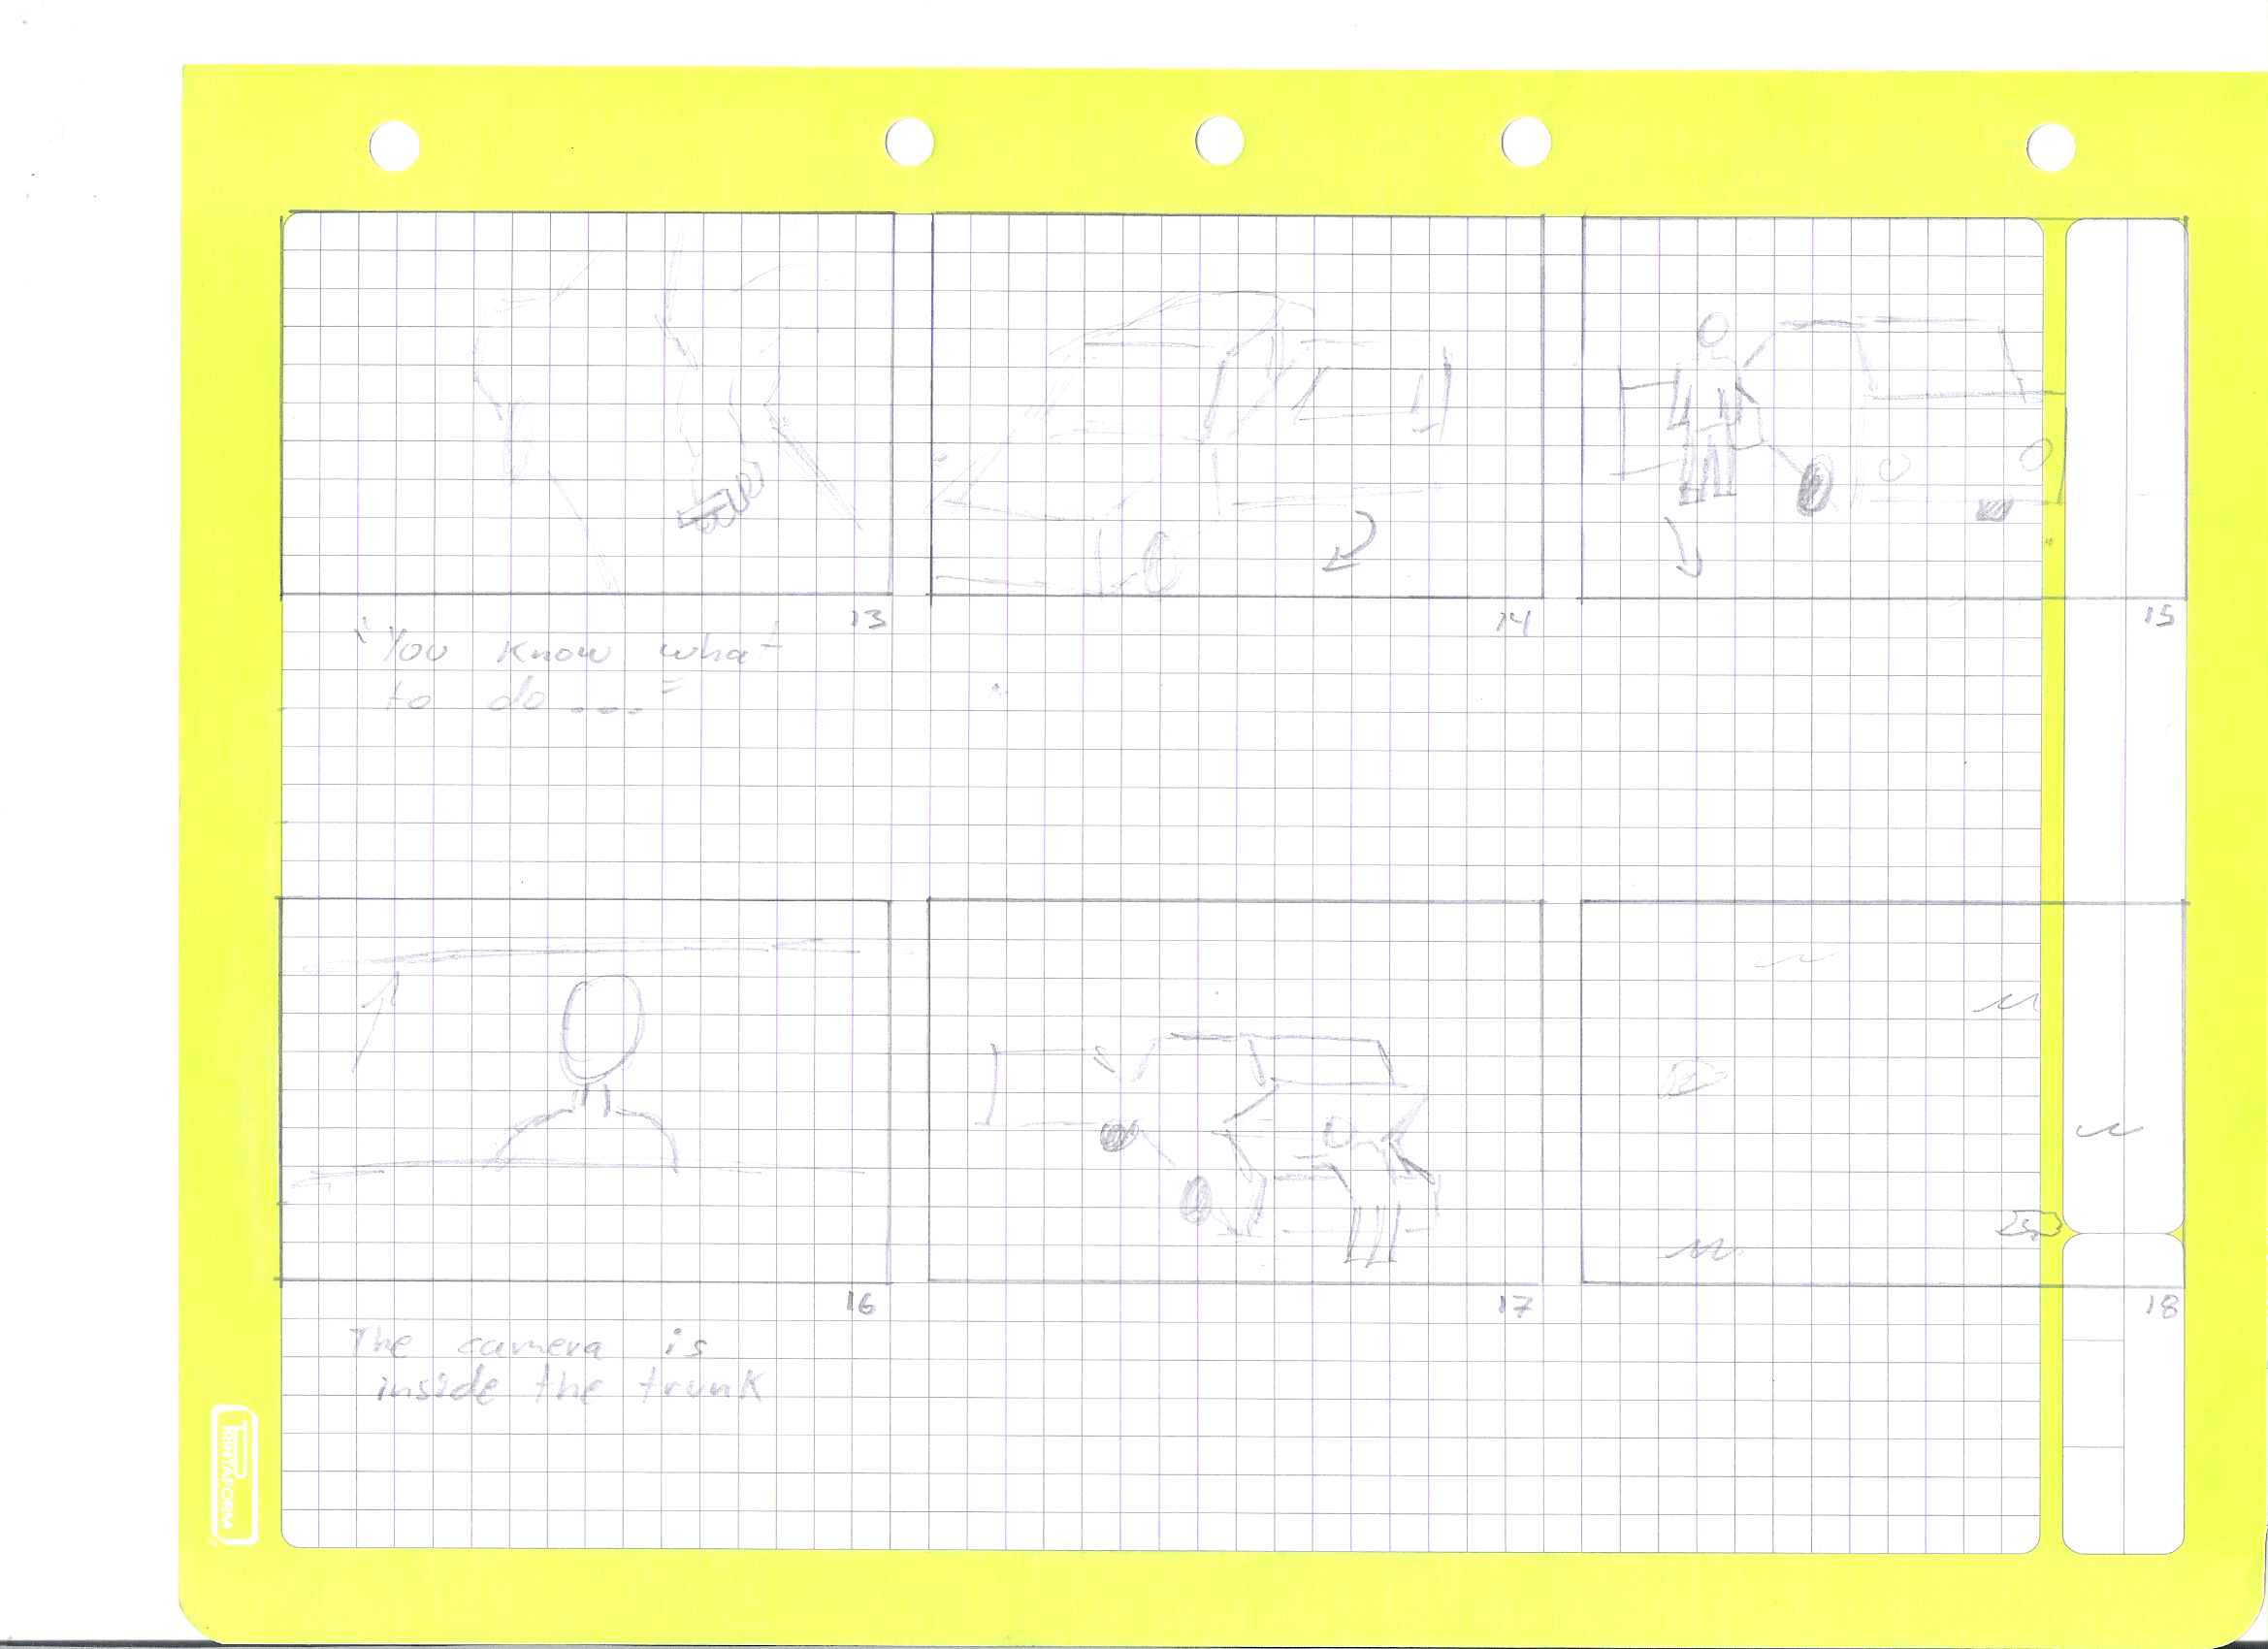 13
14
15
"You know what
to do ..."
16
17
18
The camera is
inside the trunk
TRINTAFORM